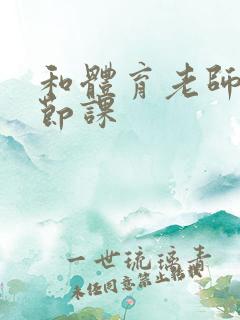 和體育老師
節課
一世琉璃青
未任同意禁止轉載